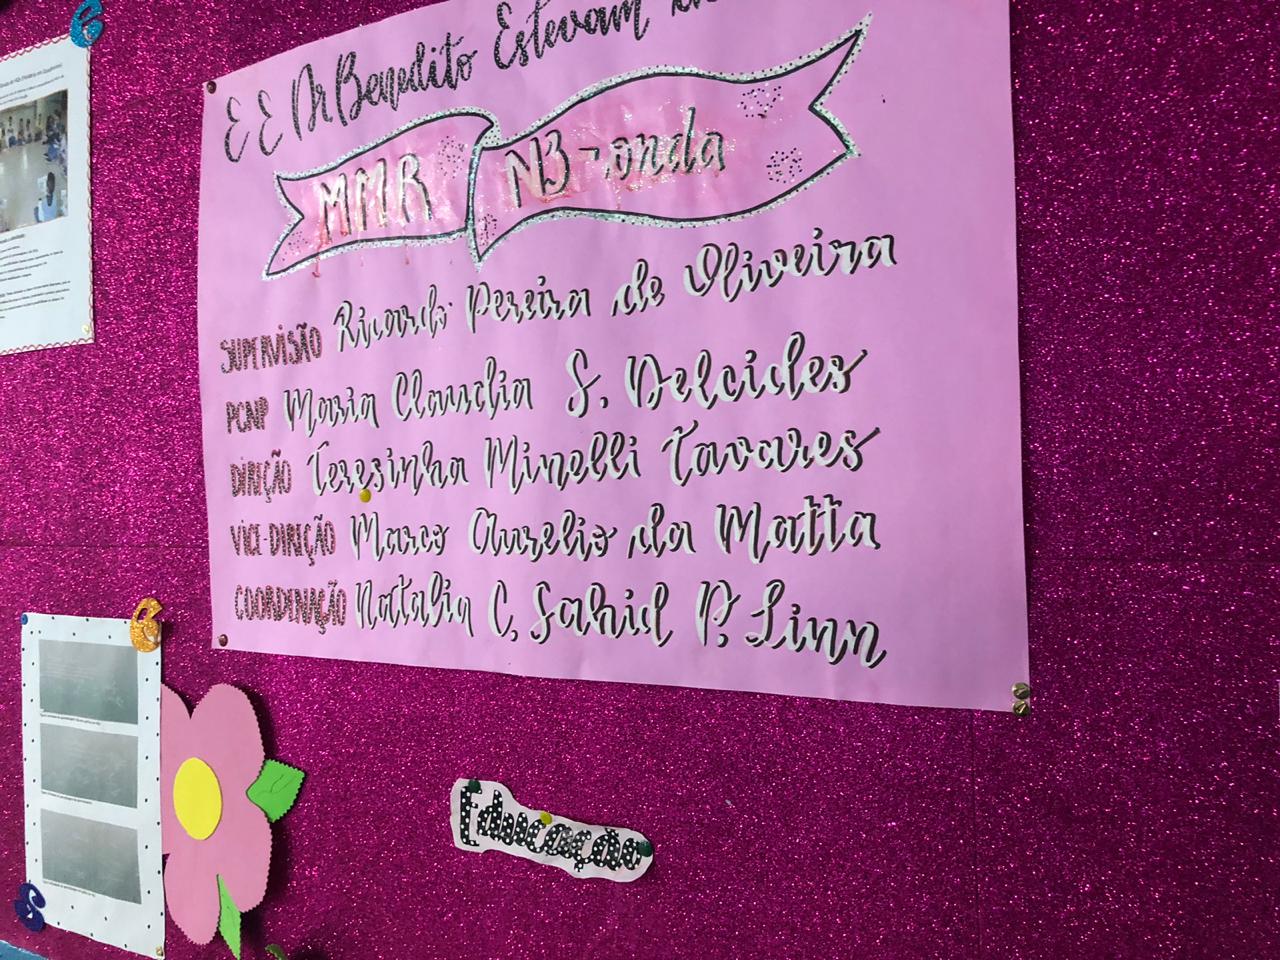 E E Dr Benedito Estevam
MMR N3-onda
SUPERVISÃO Ricardo Pereira de Oliveira
PCNP Maria Claudia S. Delcides
DIREÇÃO Teresinha Minelli Tavares
VICE-DIREÇÃO Marco Aurelio da Matta
COORDENAÇÃO Natalia C. Sahid P. Linn
Educação